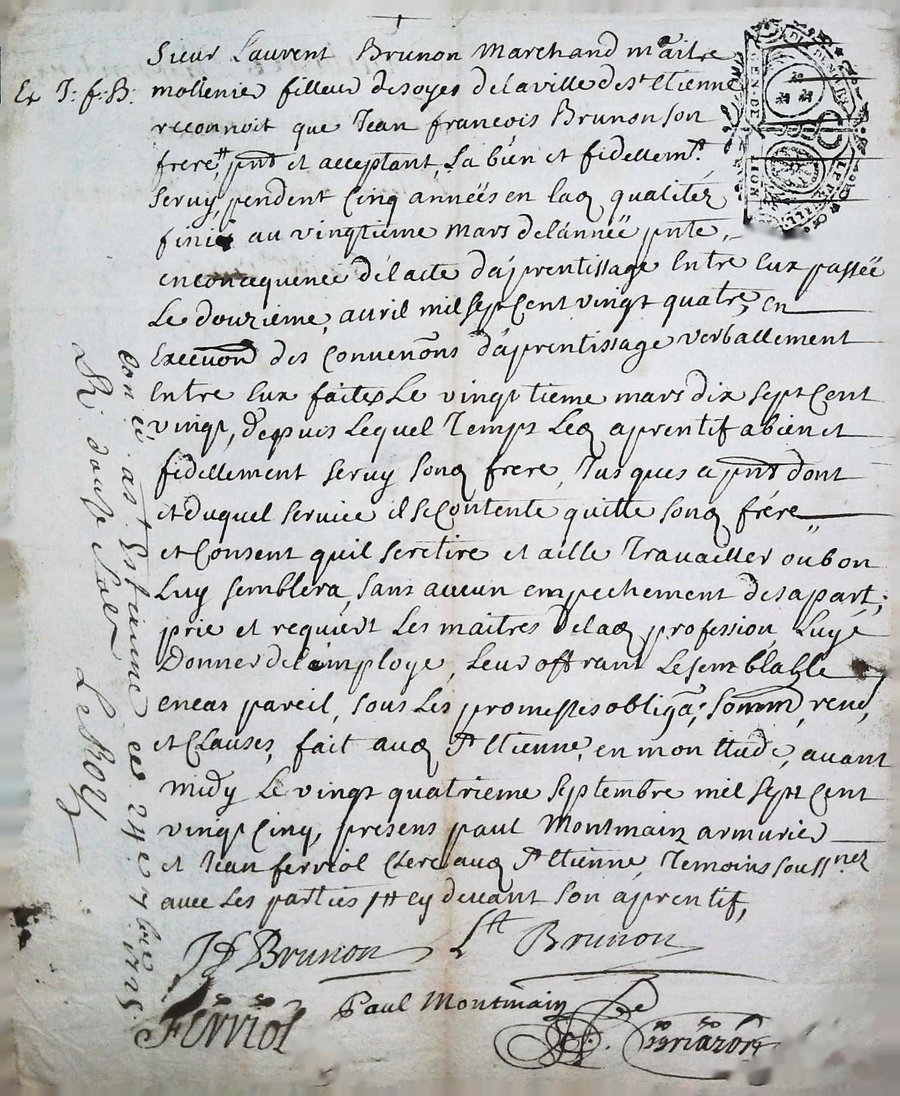 Sieur Laurent Brunon Marchand maitre
Ex J: f: B:
molienier filleur desoyes delaville de st Etienne
reconnoit que Jean francois Brunon son
frere, pnt et acceptant, La bien et fidellemt.
Seruy, pendent Cinq années en lad qualitéz
finies au vingtieme mars delannéé pnte,
enconcequence de lacte daprentissage Entre Eux passéé
Le douzieme, auril mil sept Cent vingt quatre, en
Execuon des Convenons daprentissage verballement
Entre Eux faites Le vingtieme mars dix sept Cent
vingt, depuis Lequel Temps Led aprentif a bien et
fidellement seruy sond frere, Jusques a pnt dont
et duquel service il se Contente quitte sond frére
et Consent quil seretire et aille Travailler ou bon
Luy semblera, sans aucun empechement desapart,
prie et requiert Les maitres delad profession Luy
Donner del'employe, Leur offrant Lesemblable
encas pareil, sous Les promesses obliga: Somm, renon,
et Clauses, fait aud St Etienne, en mon Etude, auant
midy Le vingt quatrieme septembre mil sept Cent
vingt Cinq, presens paul Montmain armurier
et Jean ferriol Clerc aud St Etienne, Temoins soussnez
avec Les parties ... Cy deuant son aprentif,
Jf Brunon Lt Brunon
Ferriol Paul Montmain
Con.lé a St Estienne ce 24e 7bre 1725
R. douze sols Le Roy
GEN DE LION